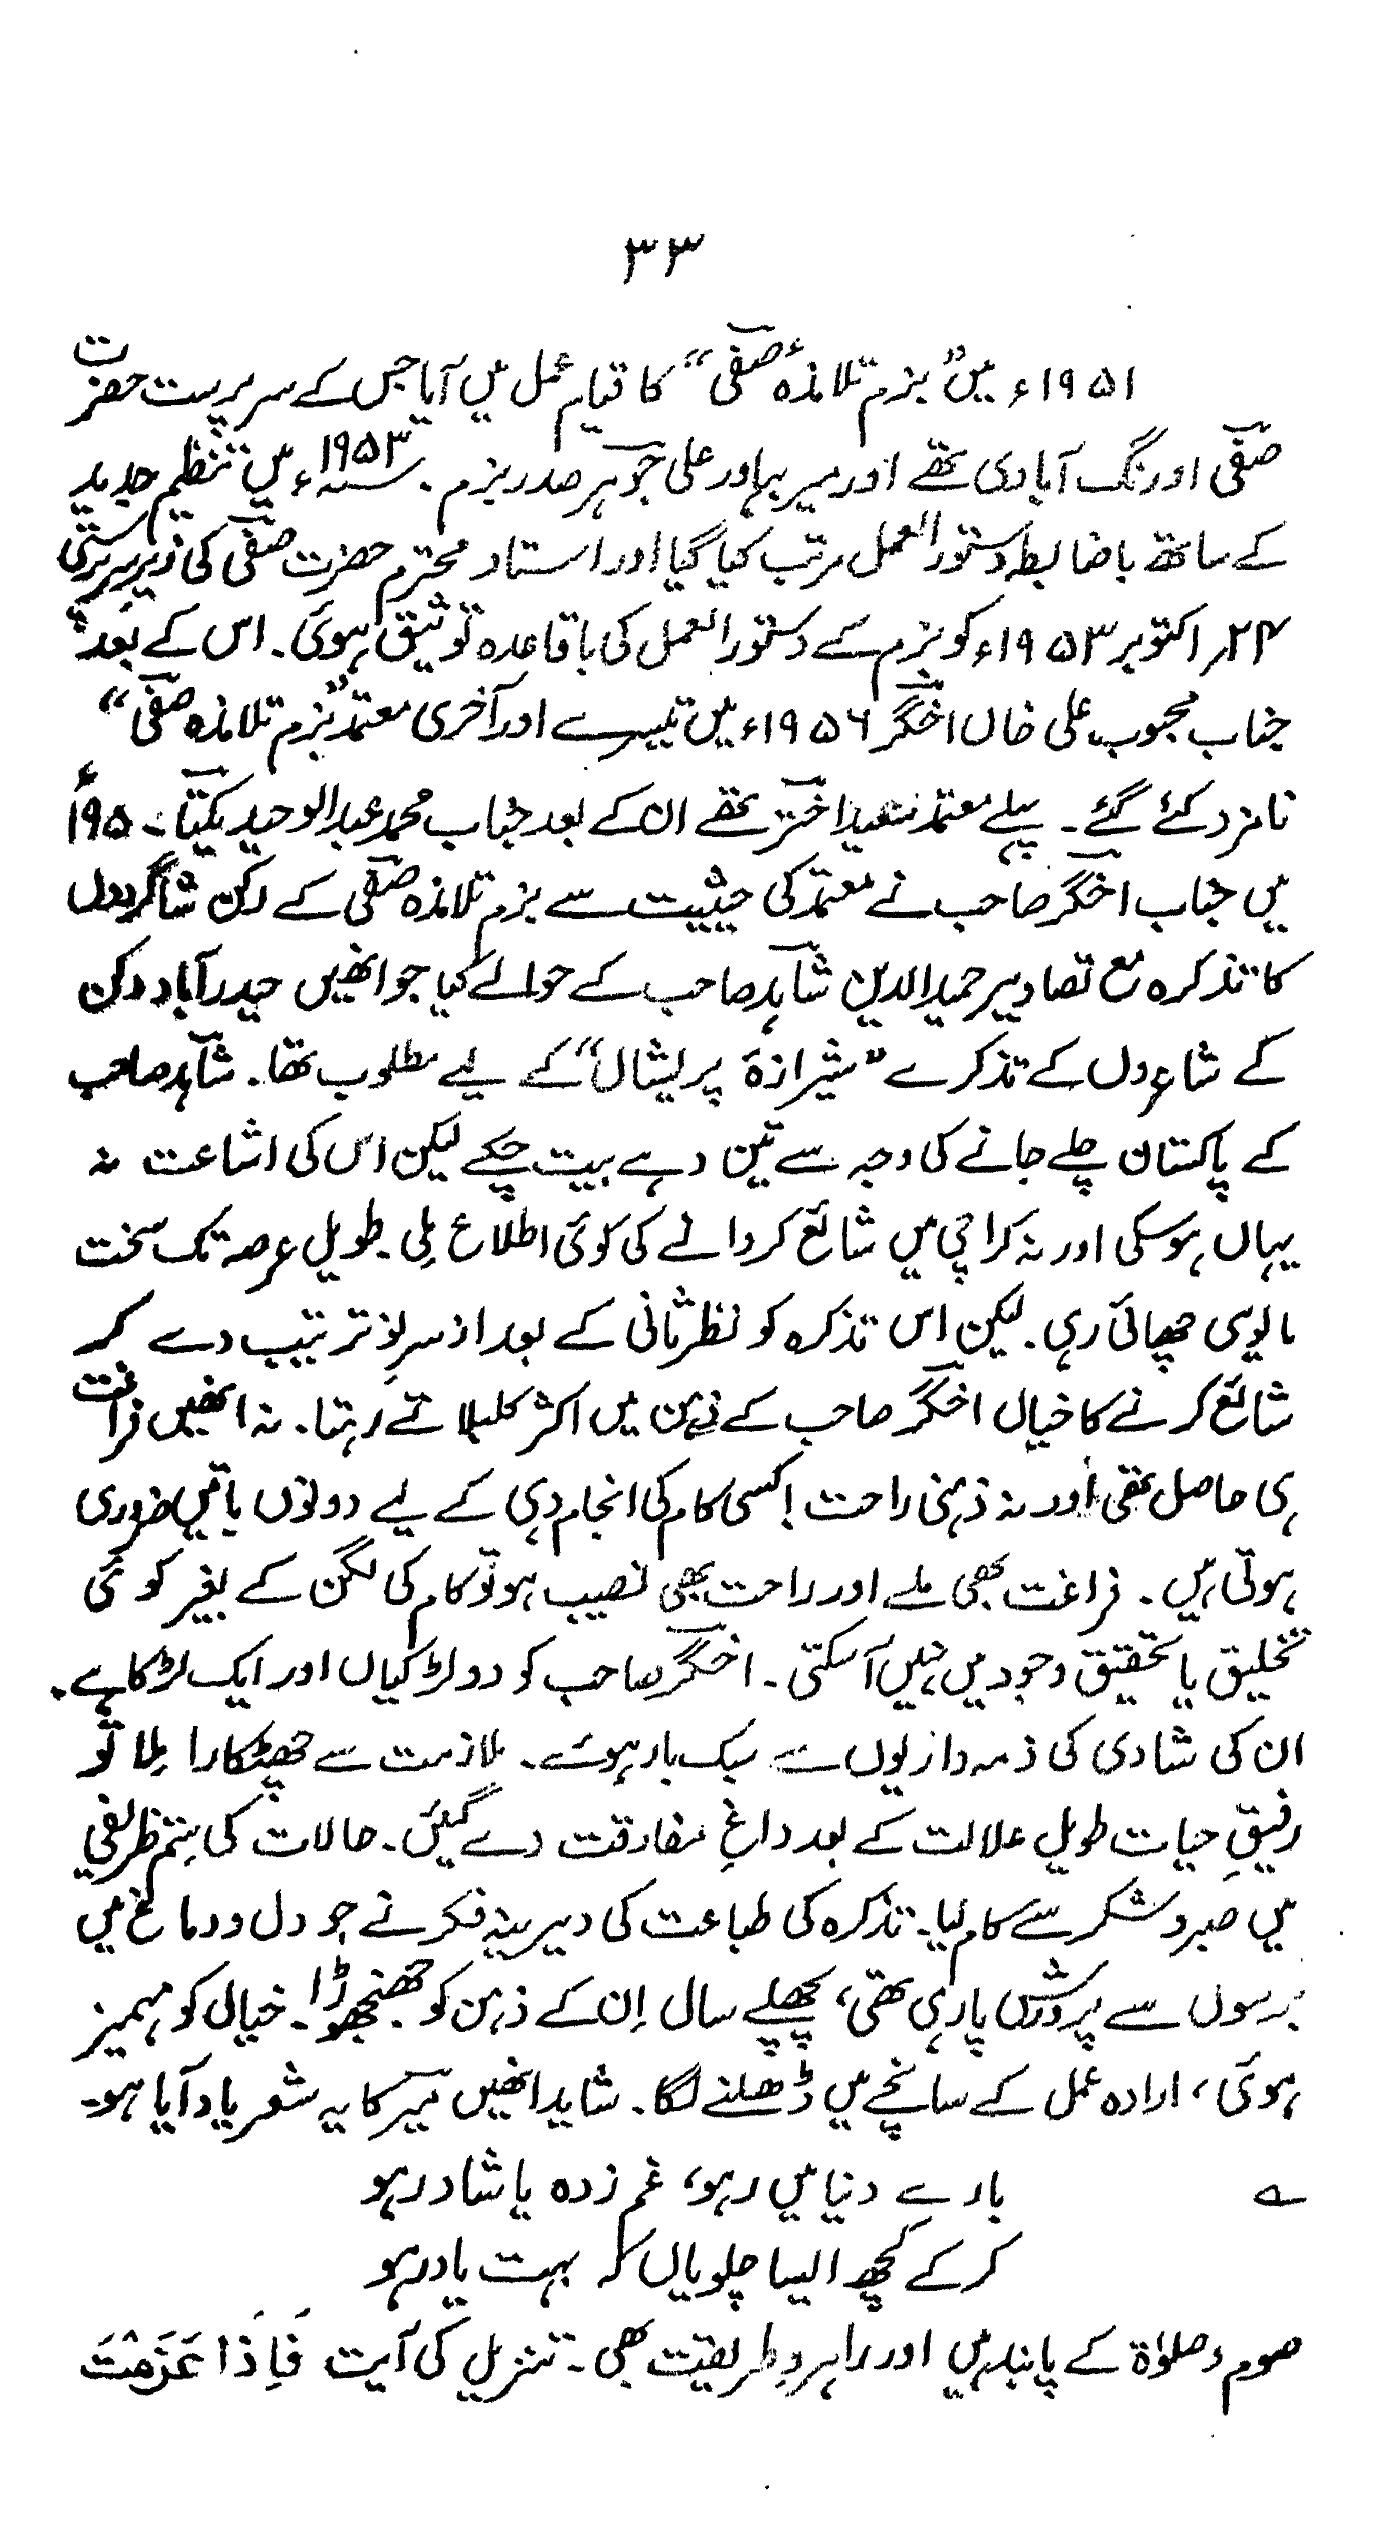 ۳۳
۱۹۵۱ء میں ”بزم تلامذہٴ صفیؔ“ کا قیام عمل میں آیا جس کے سرپرست حضرت
صفیؔ اورنگ آبادی تھے اور میر بہادر علی جوہرؔ صدر بزم۔ سنہ ۱۹۵۳ء میں تنظیم جدید
کے ساتھ باضابطہ دستور العمل مرتب کیا گیا اور استاد محترم حضرت صفیؔ کی زیرِ سرپرستی
۲۴؍ اکتوبر ۱۹۵۳ء کو بزم کے دستور العمل کی باقاعدہ توثیق ہوئی۔ اس کے بعد
جناب محبوب علی خاں اخگرؔ ۱۹۵۶ء میں تیسرے اور آخری معتمد ”بزم تلامذہ صفیؔ“
نامزد کئے گئے۔ پہلے معتمد سعید اخترؔ تھے ان کے بعد جناب محمد عبدالوحید یکتاؔ۔ ۱۹۵ء
میں جناب اخگرؔ صاحب نے معتمد کی حیثیت سے بزم تلامذہ صفیؔ کے رکن شاگردوں
کا تذکرہ مع تصاویر حمیدالدین شاہدؔ صاحب کے حوالے کیا جو انھیں حیدرآباد دکن
کے شاعروں کے تذکرے ”شیرازۂ پریشاں“ کے لیے مطلوب تھا۔ شاہدؔ صاحب
کے پاکستان چلے جانے کی وجہ سے تین دہے بیت چکے لیکن اس کی اشاعت نہ
یہاں ہوسکی اور نہ کراچی میں شائع کروانے کی کوئی اطلاع مِلی۔ طویل عرصہ تک سخت
مایوسی چھائی رہی۔ لیکن اس تذکرہ کو نظرثانی کے بعد ازسرِنو ترتیب دے کر
شائع کرنے کا خیال اخگرؔ صاحب کے ذہن میں اکثر کلبلاتے رہتا۔ نہ انھیں فراغت
ہی حاصل تھی اور نہ ذہنی راحت! کسی کام کی انجام دہی کے لیے دونوں باتیں ضروری
ہوتی ہیں۔ فراغت بھی ملے اور راحت بھی نصیب ہو تو کام کی لگن کے بغیر کوئی
تخلیق یا تحقیق وجود میں نہیں آسکتی۔ اخگرؔ صاحب کو دو لڑکیاں اور ایک لڑکا ہے۔
ان کی شادی کی ذمہ داریوں سے سبک بار ہوئے۔ ملازمت سے چھٹکارا مِلا تو
رفیقِ حیات طویل علالت کے بعد داغِ مفارقت دے گئیں۔ حالات کی ستم ظریفی
میں صبر و شکر سے کام لیا۔ تذکرہ کی طباعت کی دیرینہ فکر نے جو دل و دماغ میں
برسوں سے پرورش پارہی تھی، پچھلے سال اِن کے ذہن کو جھنجھوڑا۔ خیال کو مہمیز
ہوئی، ارادہ عمل کے سانچے میں ڈھلنے لگا۔ شاید انھیں میرؔ کا یہ شعر یاد آیا ہو۔
؎ بارے دنیا میں رہو، غم زدہ یا شاد رہو
کرکے کچھ ایسا چلو یاں کہ بہت یاد رہو
صوم و صلوٰۃ کے پابند ہیں اور راہروِ طریقت بھی۔ تنزیل کی آیت فَاِذَا عَزَمْتَ